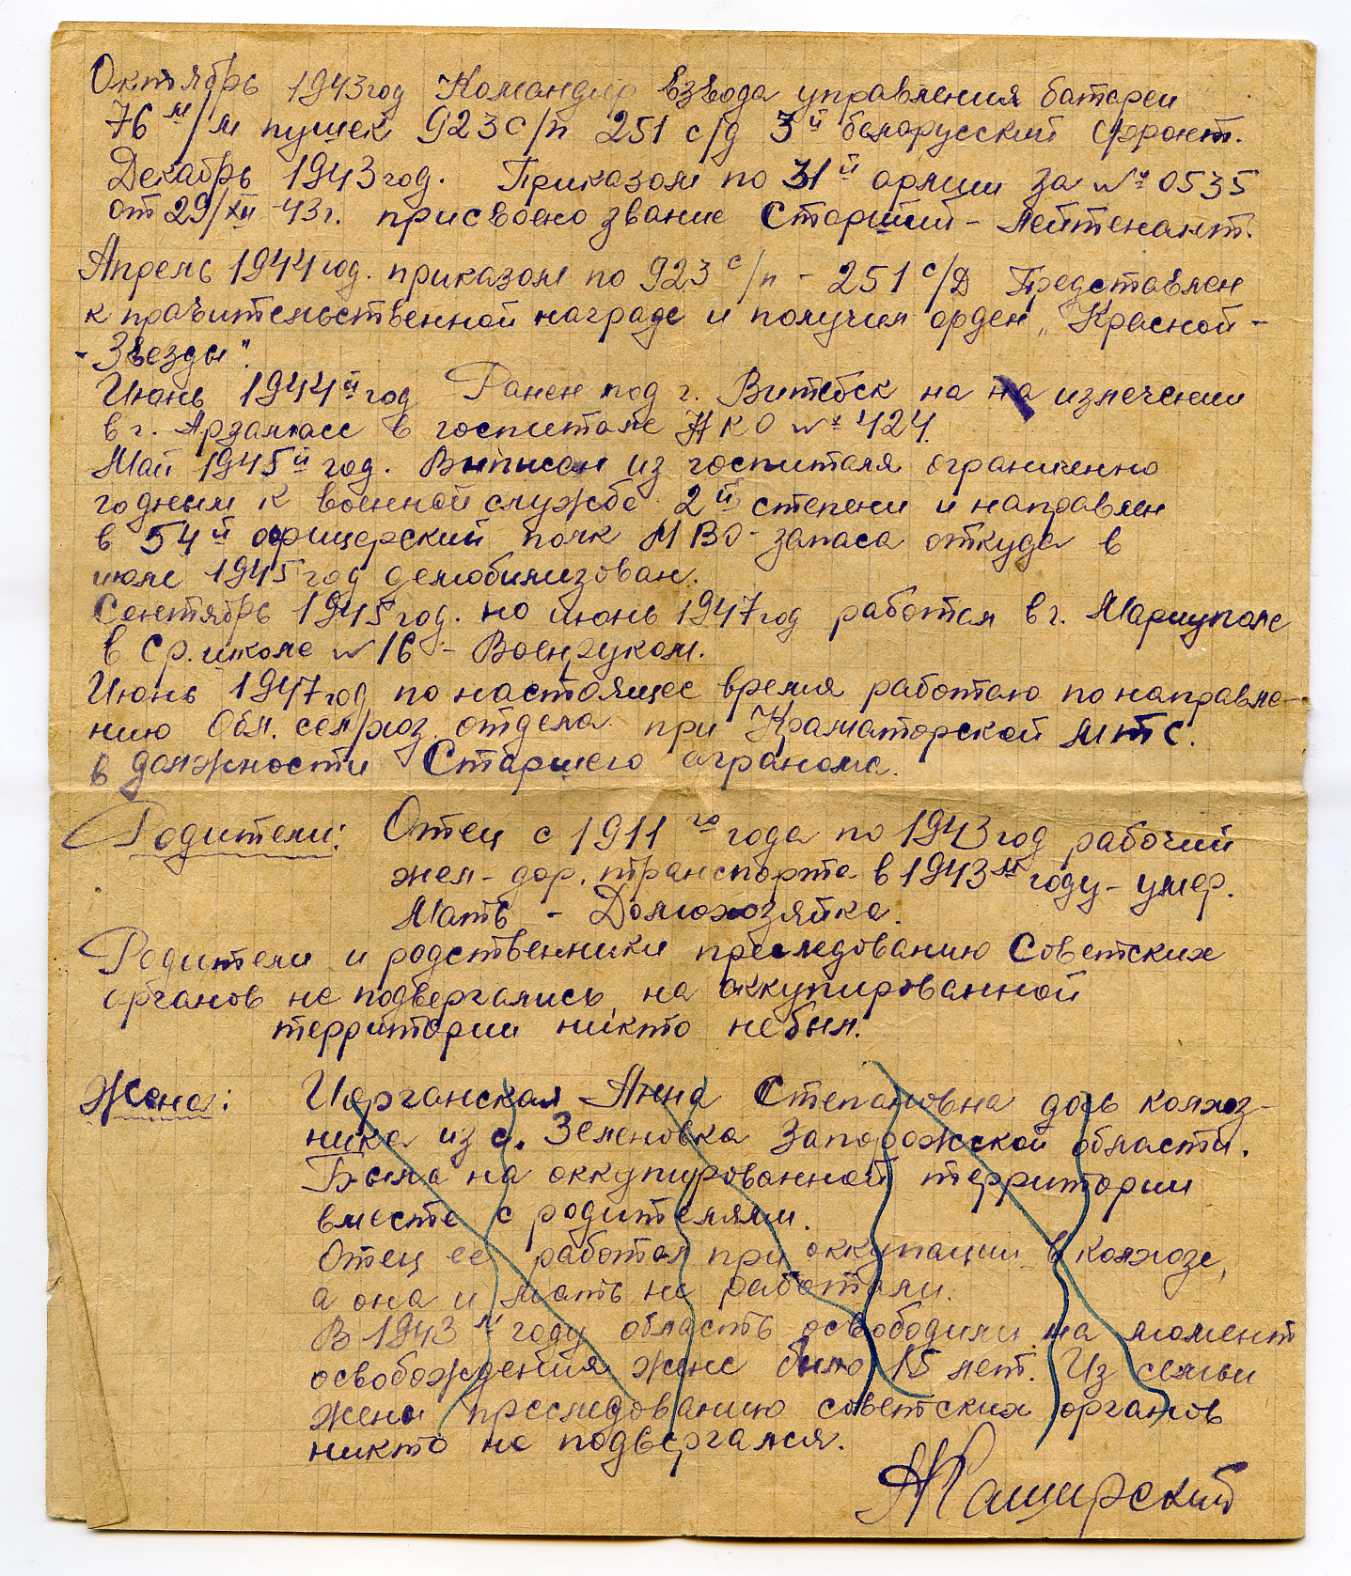 Октябрь 1943 год Командир взвода управления батареи
76 м/м пушек 923 с/п 251 с/д 3й белорусский фронт.
Декабрь 1943 год. Приказом по 31й армии за № 0535
от 29/XII-43 г. присвоено звание Старший-лейтенант.
Апрель 1944 год. приказом по 923 с/п - 251 с/д Представлен
к правительственной награде и получил орден „Красной-
-Звезды".
Июнь 1944й год Ранен под г. Витебск на на излечении
в г. Арзамасе в госпитале НКО № 424.
Май 1945й год. Выписан из госпиталя ограниченно
годным к военной службе 2й степени и направлен
в 54й офицерский полк МВО-запаса откуда в
июле 1945 год демобилизован.
Сентябрь 1945 год. по июнь 1947 год работал в г. Мариуполе
в Ср. школе № 16 - Военруком.
Июнь 1947 год по настоящее время работаю по направле-
нию Обл. сель/хоз. отдела при Краматорской МТС.
в должности Старшего агранома.
Родители: Отец с 1911го года по 1943 год рабочий
жел-дор. транспорта в 1943м году-умер.
Мать - Домохозяйка.
Родители и родственники преследованию Советских
органов не подвергались, на аккупированной
территории никто небыл.
Жена: Анна Степановна дочь колхоз-
ника из с. Зеленовка Запорожской области.
Была на оккупированной территории
вместе с родителями.
Отец её работал при оккупации в колхозе,
а она и мать не работали.
В 1943м году область освободили, на момент
освобождения жене было 15 лет. Из семьи
жены преследованию советских органов
никто не подвергался.